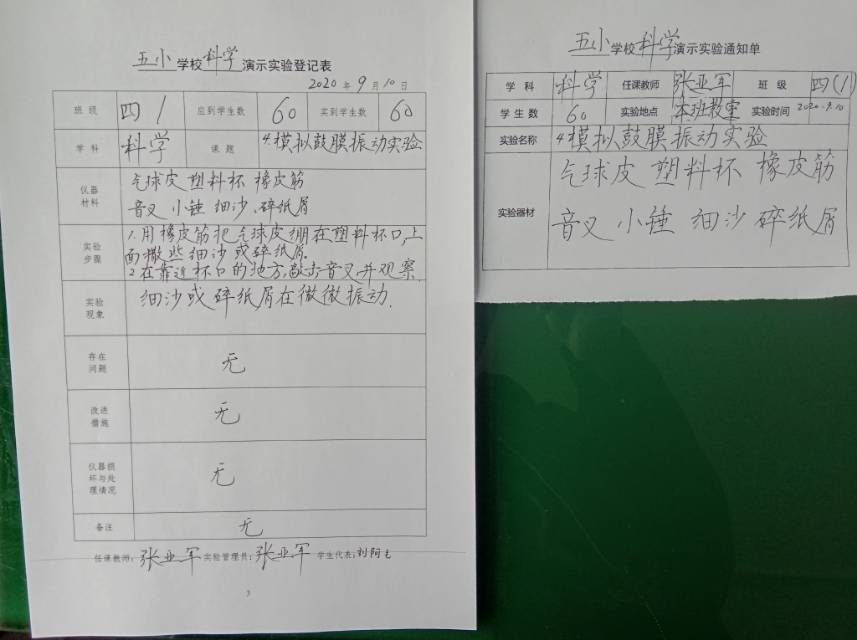 五小学校科学演示实验登记表
2020年9月10日
班级 四1 应到学生数 60 实到学生数 60
学科 科学 课题 4.模拟鼓膜振动实验
仪器材料 气球皮 塑料杯 橡皮筋
音叉 小锤 细沙、碎纸屑
实验步骤 1.用橡皮筋把气球皮绷在塑料杯口,上
面撒些细沙或碎纸屑.
2.在靠近杯口的地方,敲击音叉并观察.
实验现象 细沙或碎纸屑在微微振动.
存在问题 无
改进措施 无
仪器损坏与处理情况 无
备注 无
任课教师:张亚军 实验管理员:张亚军 学生代表:刘阳
3
五小学校科学演示实验通知单
学科 科学 任课教师 张亚军 班级 四(1
学生数 60 实验地点 本班教室 实验时间 2020.9.10
实验名称 4.模拟鼓膜振动实验
实验器材 气球皮 塑料杯 橡皮筋
音叉 小锤 细沙 碎纸屑